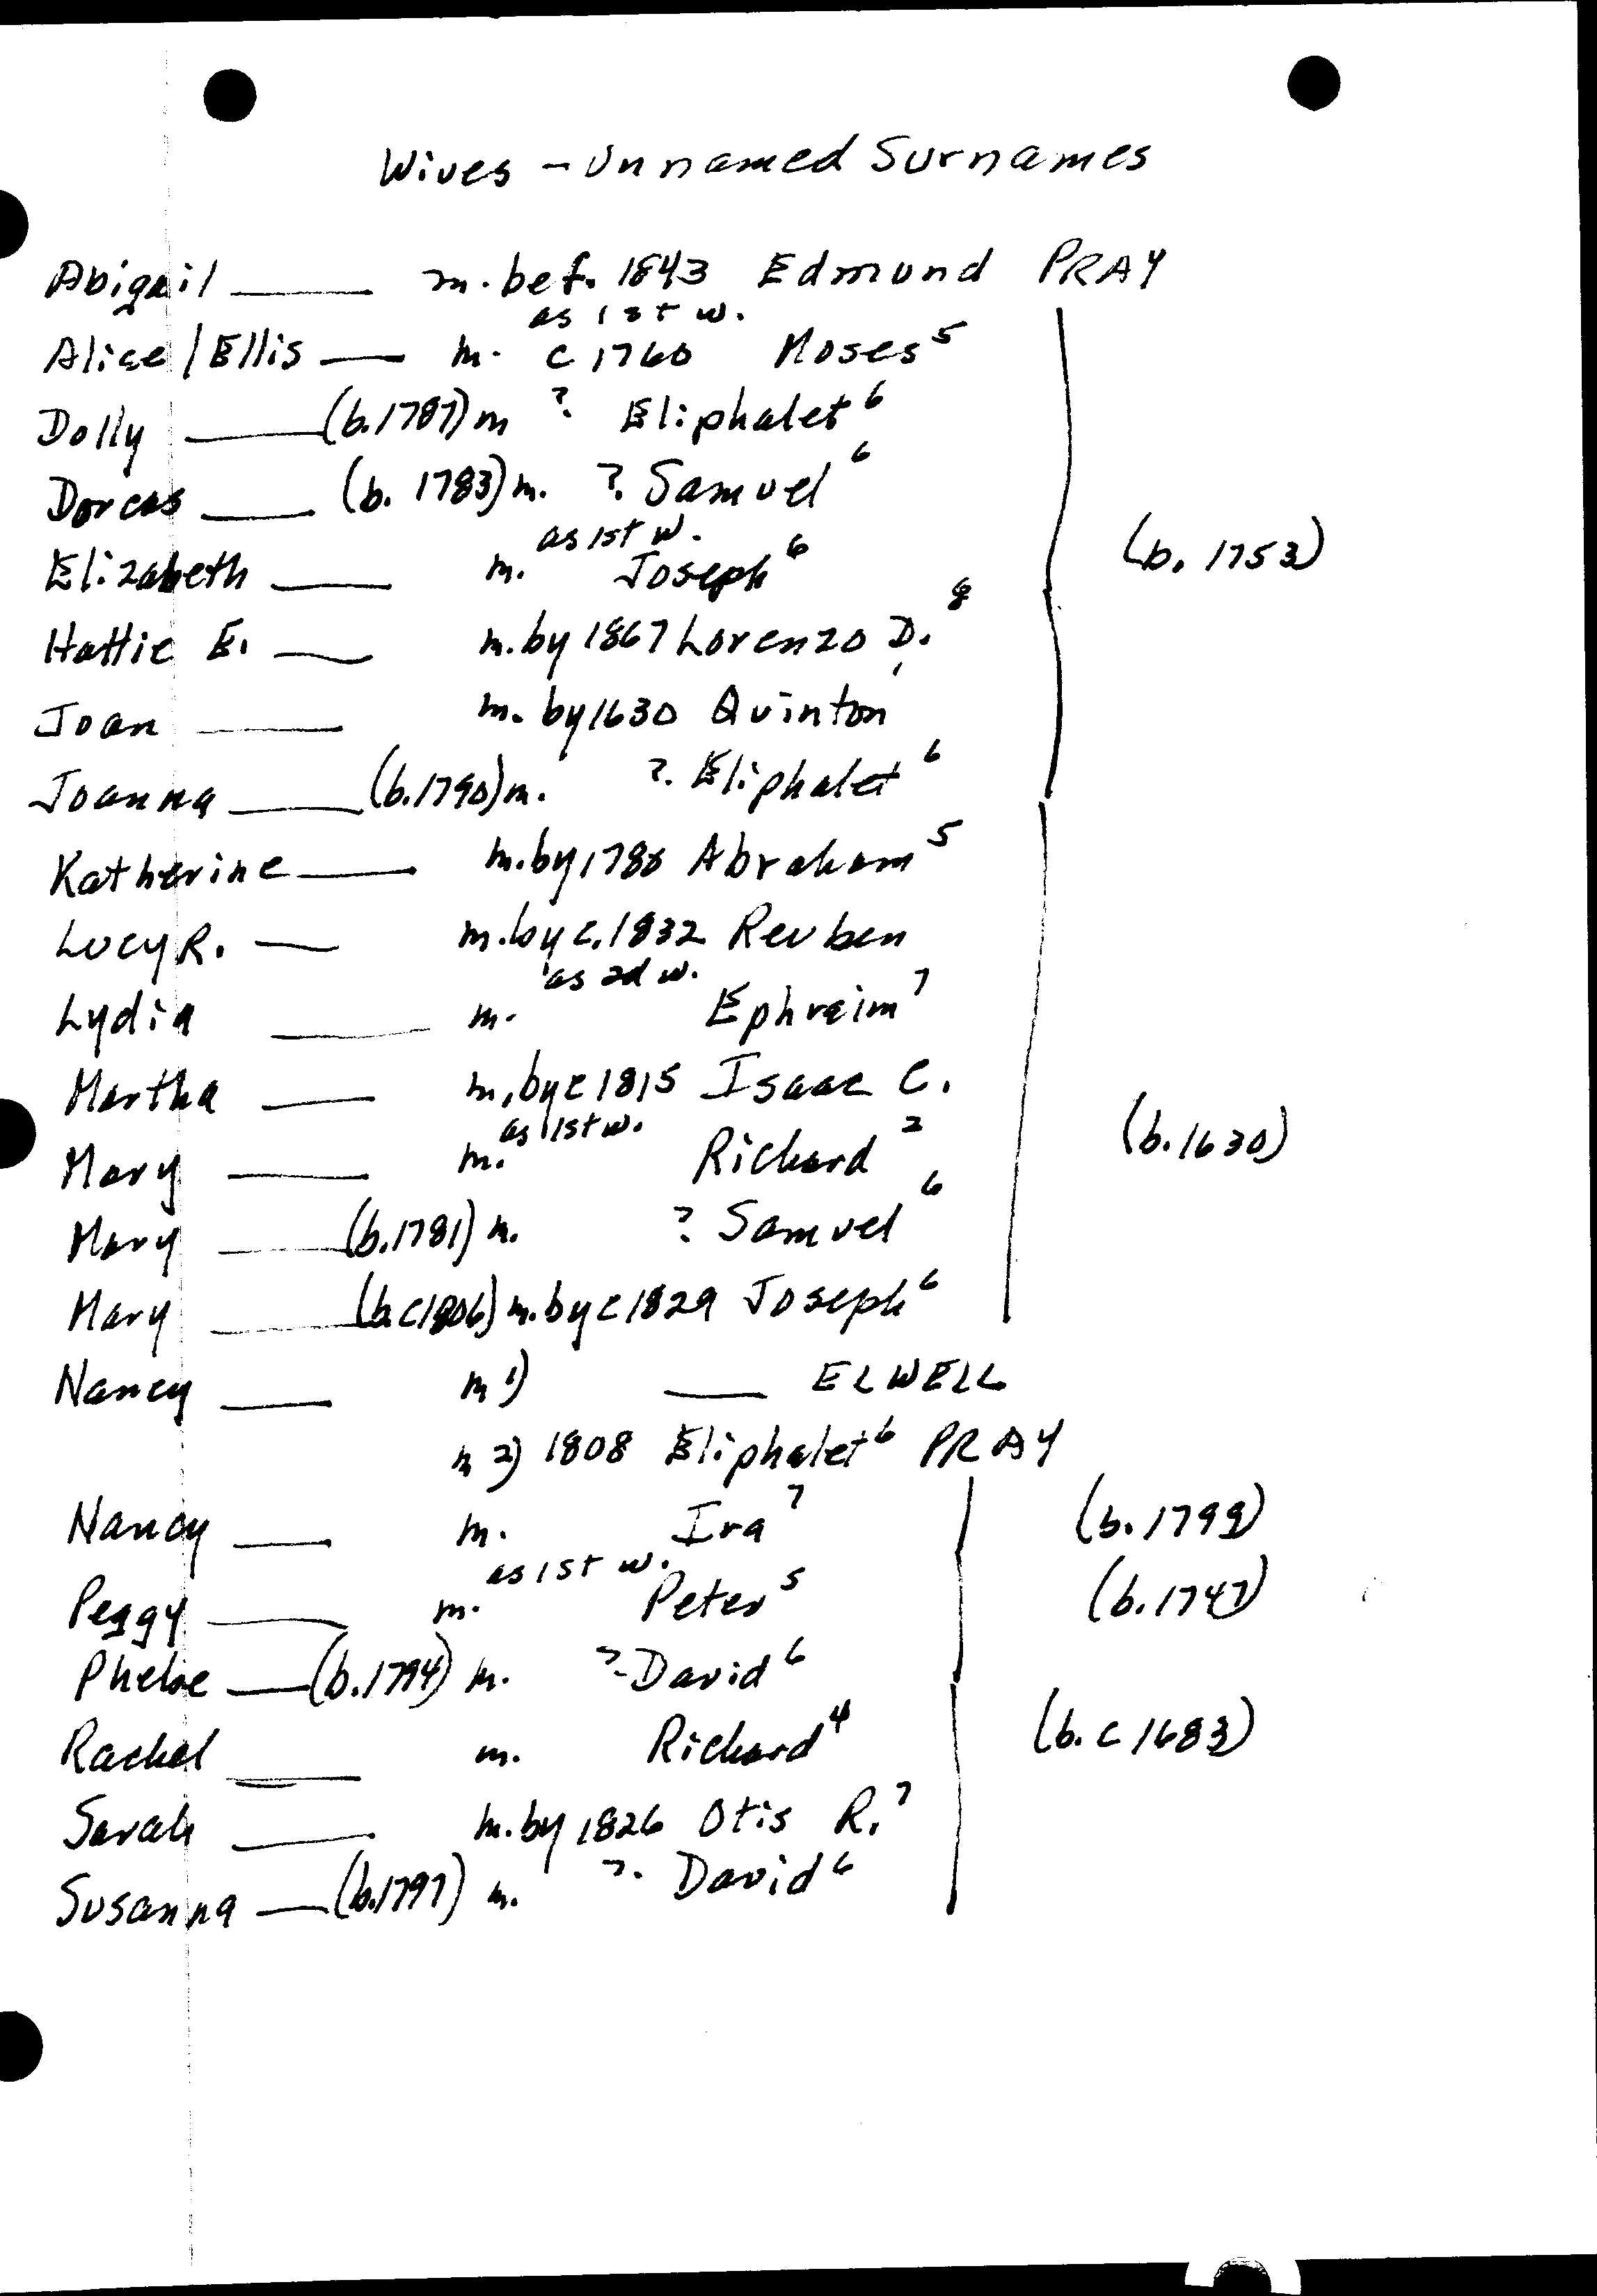 Wives - Unnamed Surnames
Abigail ___ m. bef. 1843 Edmund PRAY
as 1st w.
Alice/Ellis ___ m. c 1760 Moses⁵
Dolly ___ (b. 1787) m ? Eliphalet⁶
Dorcas ___ (b. 1783) m. ? Samuel⁶
as 1st w.
Elizabeth ___ m. Joseph⁶ (b. 1753)
Hattie E. ___ m. by 1867 Lorenzo D.⁸
Joan ___ m. by 1630 Quinton¹
Joanna ___ (b. 1790) m. ? Eliphalet⁶
Katherine ___ m. by 1780 Abraham⁵
Lucy R. ___ m. by c. 1832 Reuben
as 2d w.
Lydia ___ m. Ephraim⁷
Martha ___ m. by c 1815 Isaac C.
as 1st w.
Mary ___ m. Richard² (b. 1630)
Mary ___ (b. 1781) m. ? Samuel⁶
Mary ___ (b. c 1806) m. by c 1829 Joseph⁶
Nancy ___ m 1) ___ ELWELL
m 2) 1808 Eliphalet⁶ PRAY
Nancy ___ m. Ira⁷ (b. 1799)
as 1st w.
Peggy ___ m. Peter⁵ (b. 1747)
Phebe ___ (b. 1794) m. ? David⁶
Rachel ___ m. Richard⁴ (b. c 1683)
Sarah ___ m. by 1826 Otis R.⁷
Susanna ___ (b. 1797) m. ? David⁶